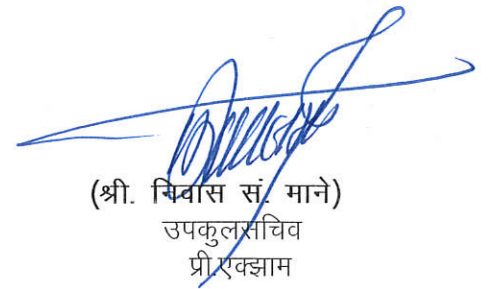 (श्री. निवास सं. माने)
उपकुलसचिव
प्री.एक्झाम